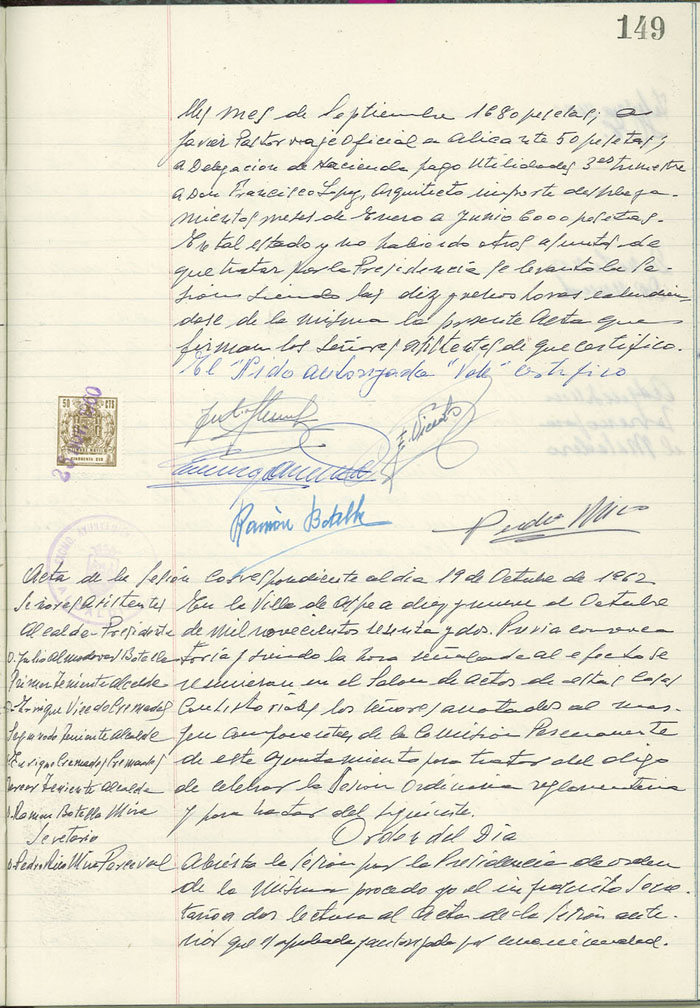 149
mes de Septiembre 1680 pesetas; a
Javier Pastor viaje Oficial a Alicante 50 pesetas;
a Delegacion de Hacienda pago Utilidades 3er trimestre
a Don Francisco Lopez, Arquitecto importe desplaza-
mientos meses de Enero a Junio 6000 pesetas.
En tal estado y no habiendo otros asuntos de
que tratar por la Presidencia se levantó la Se-
sion siendo las diez y nueve horas extendien-
dose de la misma la presente Acta que
firman los Señores asistentes de que certifico.
El autorizada "Vale" certifico
50 CTS
E. Vicedo
Ramón Botella
Pedro Miro
Acta de la Sesión correspondiente al dia 19 de Octubre de 1962
Señores asistentes
Alcalde-Presidente
D. Julio Almodovar Botella
Primer Teniente Alcalde
D. Enrique Vicedo Cremades
Segundo Teniente Alcalde
Enrique Cremades Cremades
Tercer Teniente Alcalde
D. Ramon Botella Mira
Secretario
D. Pedro Rico Mira Perceval
En la Villa de Aspe a diez y nueve de Octubre
de mil novecientos sesenta y dos. Previa convoca
toria y siendo la hora señalada al efecto se
reunieron en el Salon de actos de estas Casas
Consistoriales los Señores anotados al mar-
gen componentes de la Comisión Permanente
de este Ayuntamiento para tratar del
de celebrar la Sesion Ordinaria reglamentaria
y para tratar del siguiente.
Orden del Dia
Abierta la sesión por la Presidencia de orden
de la misma procedo yo el infrascrito Secre-
tario a dar lectura al Acta de la Sesión ante-
rior que es aprobada y autorizada por unanimidad.